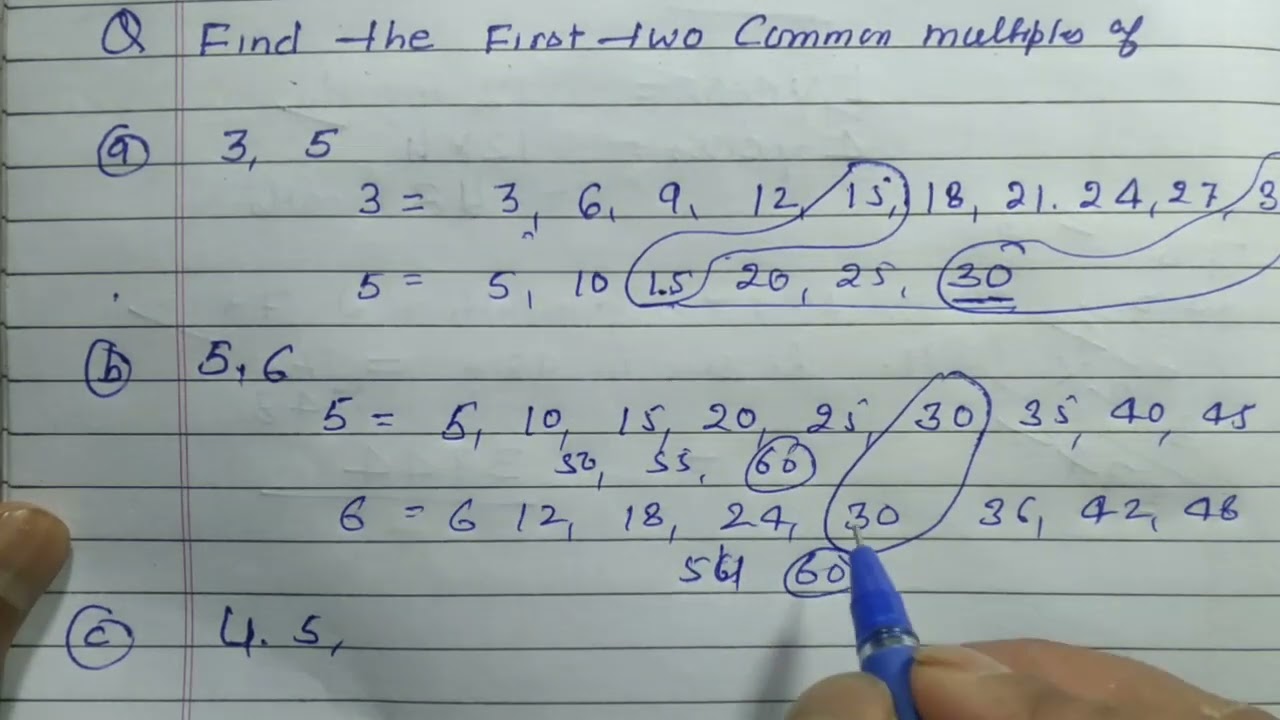 Q Find the First two Common multiples of
(a) 3, 5
3 = 3, 6, 9, 12, 15, 18, 21. 24, 27, 3
5 = 5, 10 15 20, 25, 30
(b) 5, 6
5 = 5, 10, 15, 20, 25, 30 35, 40, 45
50, 55, 60
6 = 6 12, 18, 24, 30 36, 42, 48
54 60
(c) 4. 5,